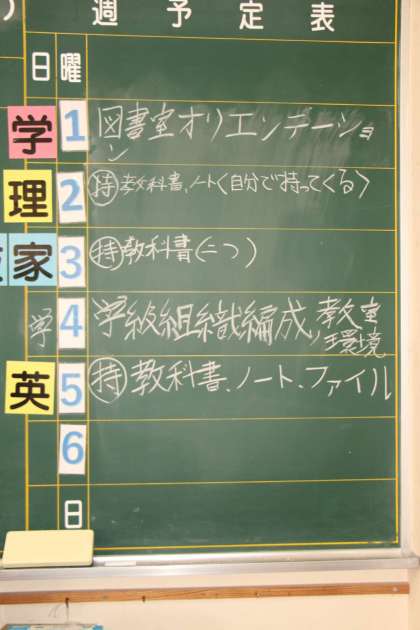 週予定表
日 曜
学 1 図書室オリエンテーショ
ン
理 2 持 教科書、ノート〈自分で持ってくる〉
家 3 持 教科書(二つ)
学 4 学級組織編成、教室
環境
英 5 持 教科書、ノート、ファイル
6
日